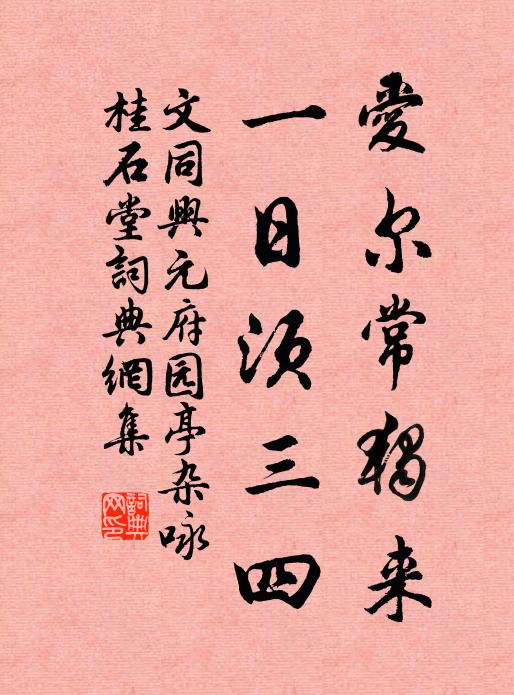 愛尔常獨来
一日须三四
文同興元府园亭杂咏
桂石堂詞典網集
詞典网印